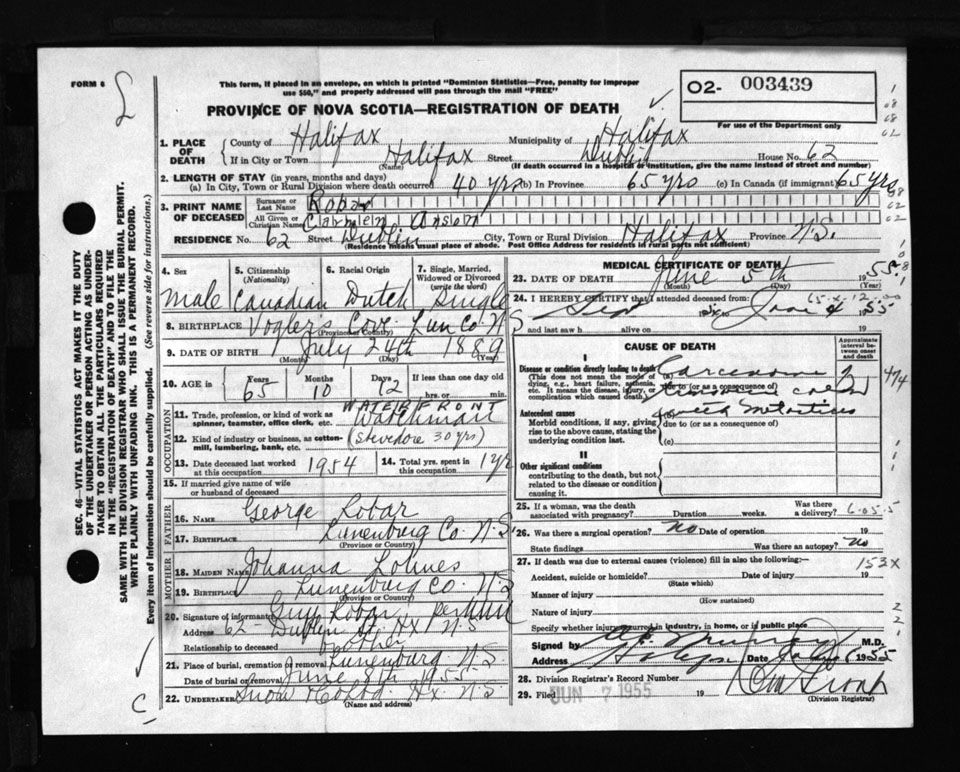 FORM 6
This form, if placed in an envelope, on which is printed "Dominion Statistics—Free, penalty for improper
use $50," and properly addressed will pass through the mail "FREE"
PROVINCE OF NOVA SCOTIA—REGISTRATION OF DEATH
02- 003439
For use of the Department only
SEC. 46—VITAL STATISTICS ACT MAKES IT THE DUTY
OF THE UNDERTAKER OR PERSON ACTING AS UNDER-
TAKER TO OBTAIN ALL THE PARTICULARS REQUIRED
IN THE "REGISTRATION OF DEATH" AND TO FILE THE
SAME WITH THE DIVISION REGISTRAR WHO SHALL ISSUE THE BURIAL PERMIT.
WRITE PLAINLY WITH UNFADING INK. THIS IS A PERMANENT RECORD.
Every item of information should be carefully supplied. (See reverse side for instructions.)
1. PLACE OF DEATH
County of Halifax Municipality of Halifax
If in City or Town Halifax Street Dublin House No. 62
(Name) (If death occurred in a hospital or institution, give the name instead of street and number)
2. LENGTH OF STAY (in years, months and days)
(a) In City, Town or Rural Division where death occurred 40 yrs (b) In Province 65 yrs (c) In Canada (if immigrant) 65 yrs
3. PRINT NAME OF DECEASED
Surname or Last Name Robar
All Given or Christian Names Carmlem Anslom
RESIDENCE No. 62 Street Dublin City, Town or Rural Division Halifax Province N.S.
(Residence means usual place of abode. Post Office Address for residents in rural parts not sufficient)
4. Sex Male
5. Citizenship (Nationality) Canadian
6. Racial Origin Dutch
7. Single, Married, Widowed or Divorced (write the word) Single
8. BIRTHPLACE Vogler's Cove Lun Co. N S
(Province or Country)
9. DATE OF BIRTH July 24th 1889
(Month) (Day) (Year)
10. AGE in Years 65 Months 10 Days 12 If less than one day old
hrs. or min.
OCCUPATION
11. Trade, profession, or kind of work as spinner, teamster, office clerk, etc. WATERFRONT Watchman
12. Kind of industry or business, as cotton-mill, lumbering, bank, etc. (stevedore 30 yrs)
13. Date deceased last worked at this occupation 1954
14. Total yrs. spent in this occupation 1 yr
15. If married give name of wife or husband of deceased
FATHER
16. NAME George Robar
17. BIRTHPLACE Lunenburg Co. N.S.
(Province or Country)
MOTHER
18. MAIDEN NAME Johanna
19. BIRTHPLACE Lunenburg Co. N.S
(Province or Country)
20. Signature of informant Guy Robar
Address 62 - Dublin St. Hx N.S
Relationship to deceased brother
21. Place of burial, cremation or removal Lunenburg N.S.
Date of burial or removal June 8th 1955
22. UNDERTAKER Snow & Co Ltd. Hx. N.S.
(Name and address)
MEDICAL CERTIFICATE OF DEATH
23. DATE OF DEATH June 5th 1955
(Month) (Day) (Year)
24. I HEREBY CERTIFY that I attended deceased from
Sep June 4 1955
and last saw h alive on 19
CAUSE OF DEATH
Approximate interval between onset and death
I
Disease or condition directly leading to death
(This does not mean the mode of dying, e.g., heart failure, asthenia, etc. It means the disease, injury, or complication which caused death.)
(a) Carcinoma
due to (or as a consequence of)
474
Antecedent causes
Morbid conditions, if any, giving rise to the above cause, stating the underlying condition last.
(b) with Metastices
due to (or as a consequence of)
(c)
II
Other significant conditions
contributing to the death, but not related to the disease or condition causing it.
25. If a woman, was the death associated with pregnancy? Duration weeks. Was there a delivery?
26. Was there a surgical operation? no Date of operation 19
State findings Was there an autopsy? no
27. If death was due to external causes (violence) fill in also the following:—
153X
Accident, suicide or homicide? Date of injury 19
(State which)
Manner of injury
(How sustained)
Nature of injury
Specify whether injury occurred in industry, in home, or in public place
Signed by M.D.
Address Date 1955
28. Division Registrar's Record Number
29. Filed JUN 7 1955 19
(Division Registrar)